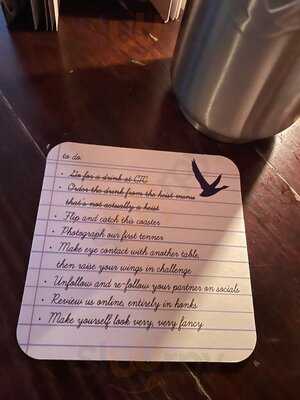 to do
• Go for a drink at CTC
• Order the drink from the heist menu
that's not actually a heist
• Flip and catch this coaster
• Photograph our first tenner
• Make eye contact with another table,
then raise your wings in challenge
• Unfollow and re-follow your partner on socials
• Review us online, entirely in honks
• Make yourself look very, very fancy